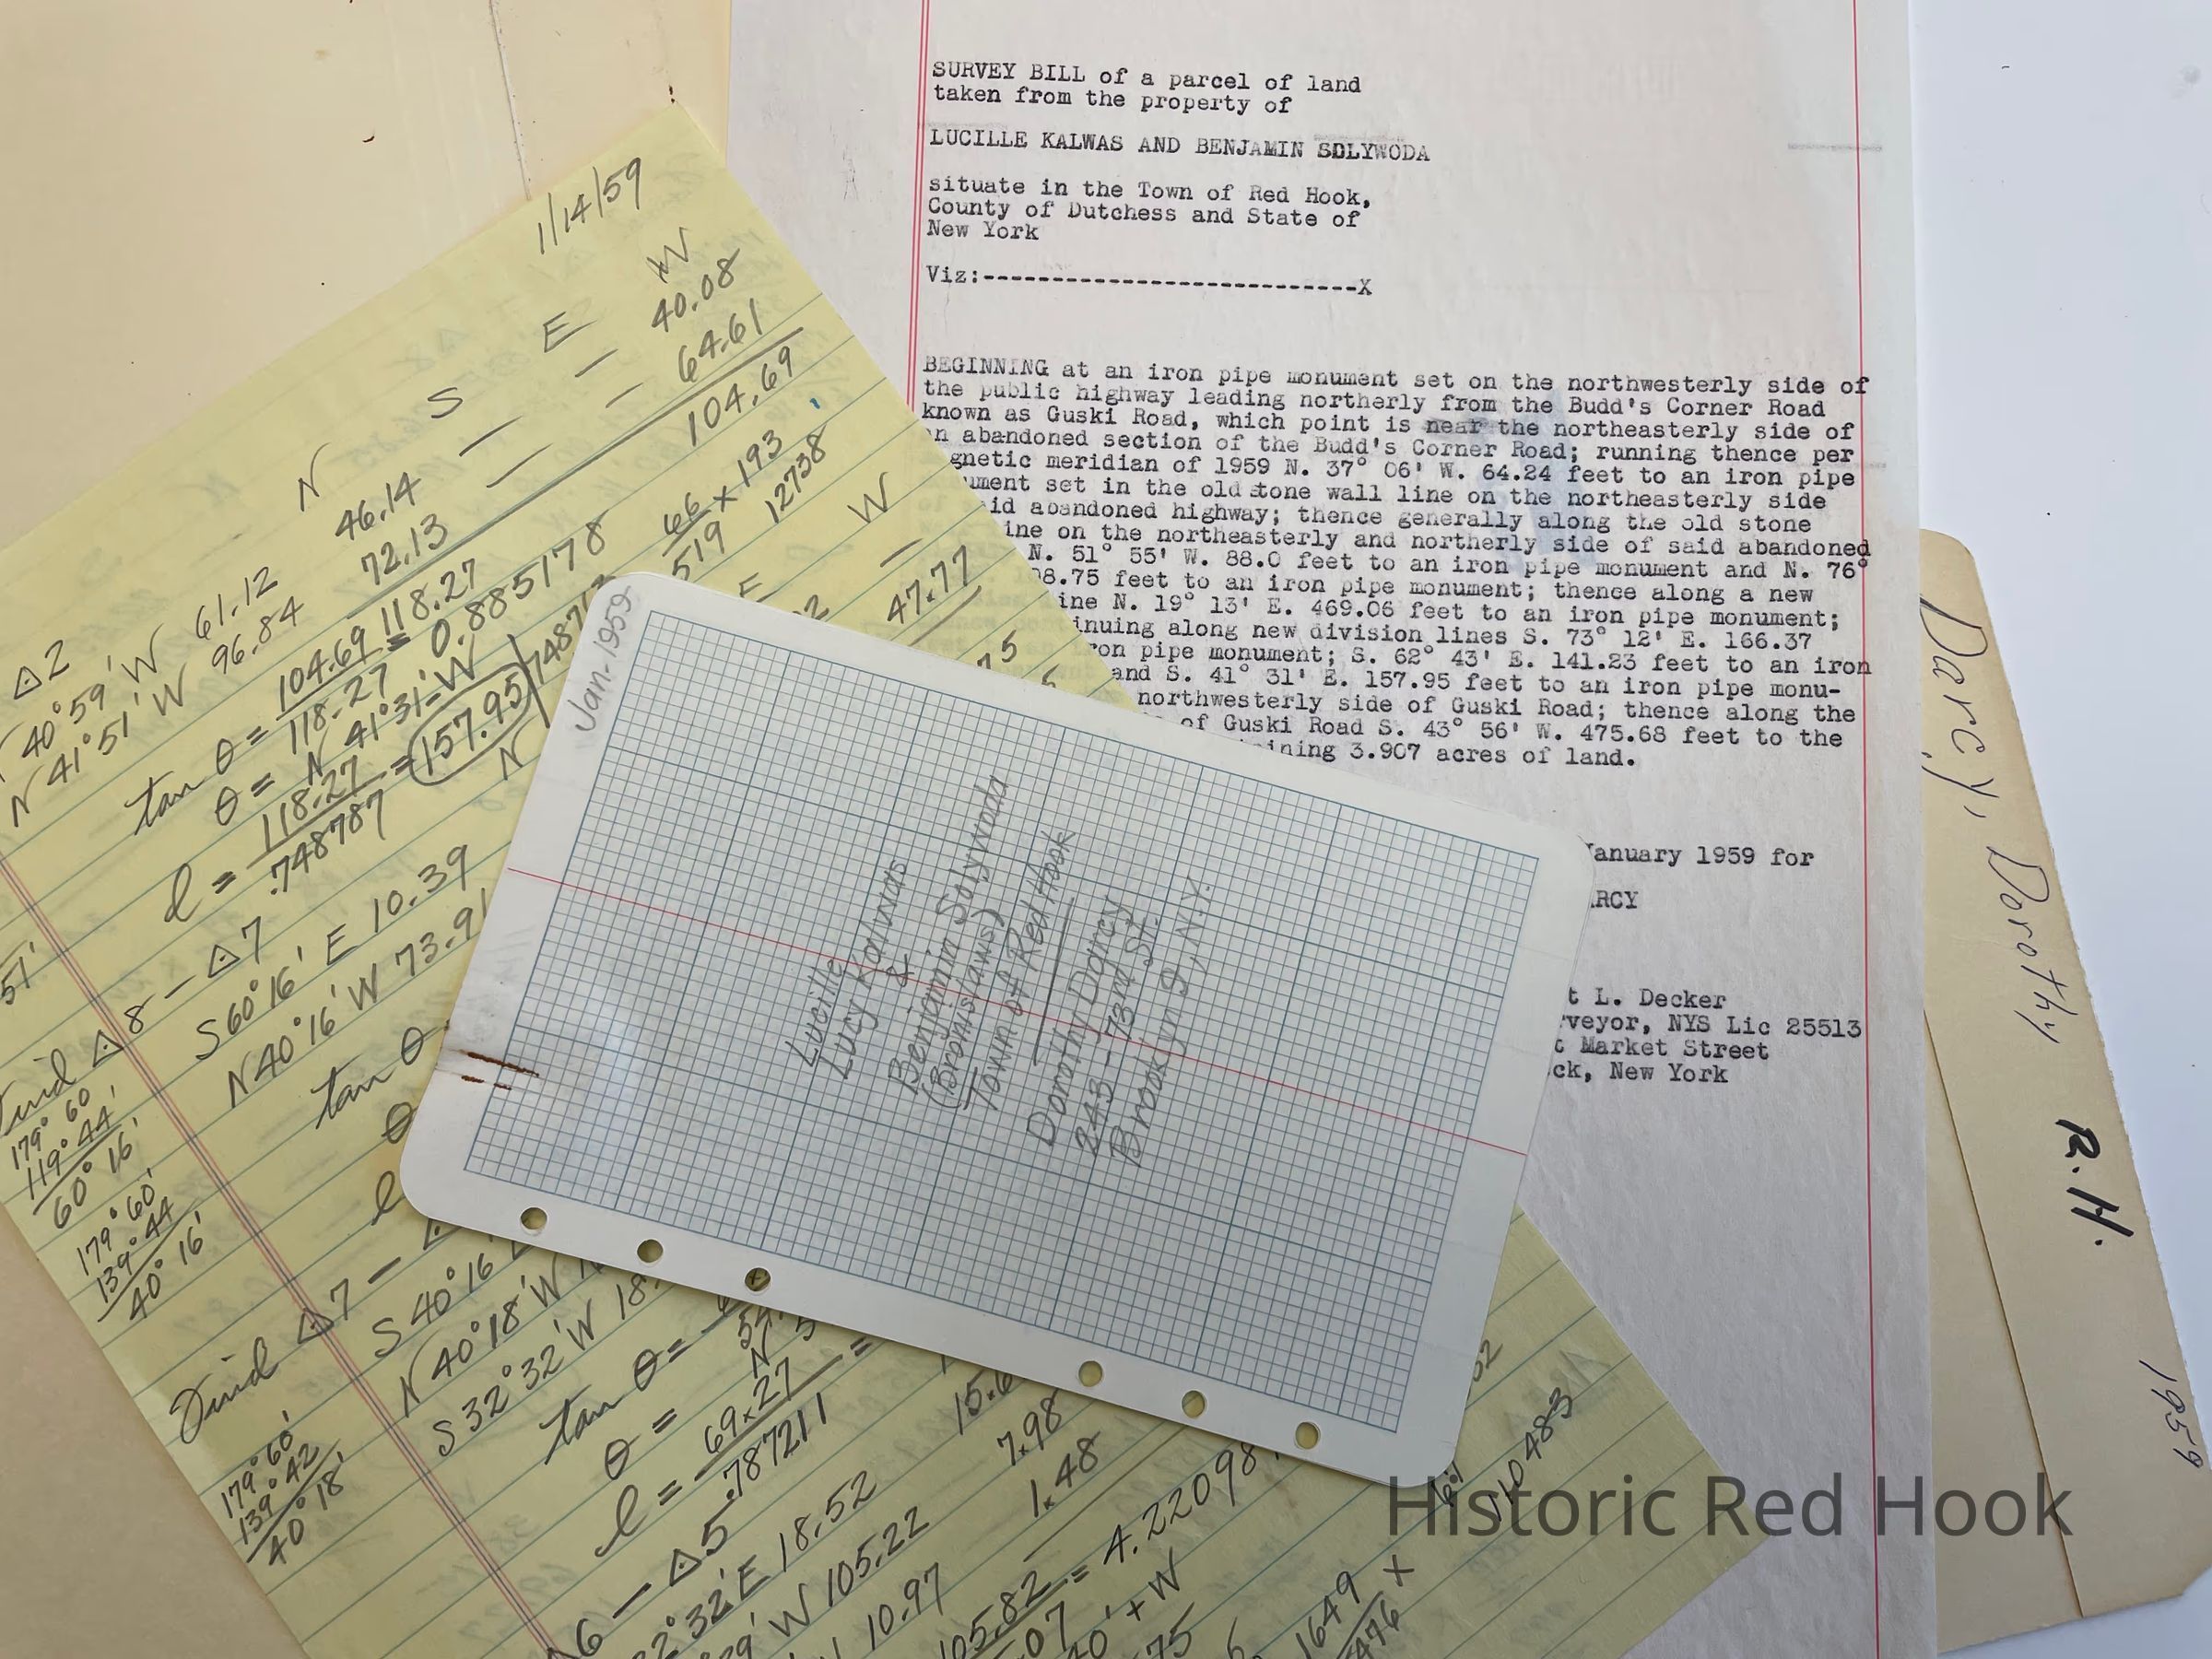 SURVEY BILL of a parcel of land
taken from the property of
LUCILLE KALWAS AND BENJAMIN SOLYWODA
situate in the Town of Red Hook,
County of Dutchess and State of
New York
Viz:---------------------------X
BEGINNING at an iron pipe monument set on the northwesterly side of
the public highway leading northerly from the Budd's Corner Road
known as Guski Road, which point is near the northeasterly side of
an abandoned section of the Budd's Corner Road; running thence per
gnetic meridian of 1959 N. 37° 06' W. 64.24 feet to an iron pipe
ument set in the old stone wall line on the northeasterly side
id abandoned highway; thence generally along the old stone
ine on the northeasterly and northerly side of said abandoned
N. 51° 55' W. 88.0 feet to an iron pipe monument and N. 76°
08.75 feet to an iron pipe monument; thence along a new
ine N. 19° 13' E. 469.06 feet to an iron pipe monument;
inuing along new division lines S. 73° 12' E. 166.37
ron pipe monument; S. 62° 43' E. 141.23 feet to an iron
and S. 41° 31' E. 157.95 feet to an iron pipe monu-
northwesterly side of Guski Road; thence along the
of Guski Road S. 43° 56' W. 475.68 feet to the
ining 3.907 acres of land.
January 1959 for
ARCY
t L. Decker
rveyor, NYS Lic 25513
Market Street
ck, New York
1/14/59
N S E W
Δ2
40°59'W 61.12 46.14 — — 40.08
N 41°51'W 96.84 72.13 — — 64.61
118.27 104.69
tan θ = 104.69 / 118.27 = 0.885178
θ = N 41°31'W
l = 118.27 / .748787 = 157.95
66 x 193
519 12738
E W
47.77
N
51'
Find Δ8 — Δ7
S60°16'E 10.39
N40°16'W 73.91
179°60'
119°44'
60°16'
179°60'
139°44'
40°16'
tan θ
θ
l
Find Δ7 —
S 40°16'
N 40°18'W
S 32°32'W 18.
179°60'
139°42'
40°18'
tan θ =
θ = N
l = 69.27 / .787211 =
6 — Δ5
2°32'E 18.52
W 105.22
10.97
15.6
7.98
1.48
105.82 = 4.22098
1649 x
476
11048.3
Jan-1959
Lucille
Lucy Kalwas
&
Benjamin Solywoda
(Bronislaws)
Town of Red Hook
Dorothy Darcy
243-73rd St.
Brooklyn 9, N.Y.
Darcy, Dorothy
R.H.
1959
Historic Red Hook